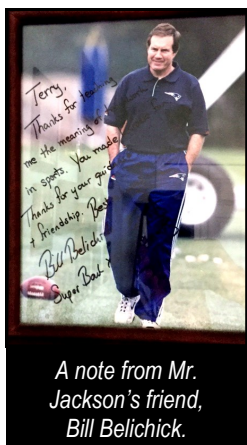 Terry,
Thanks for teaching
me the meaning of
in sports. You made
Thanks for your
+ friendship. Best
Bill Belichick
Super Bowl
A note from Mr.
Jackson's friend,
Bill Belichick.